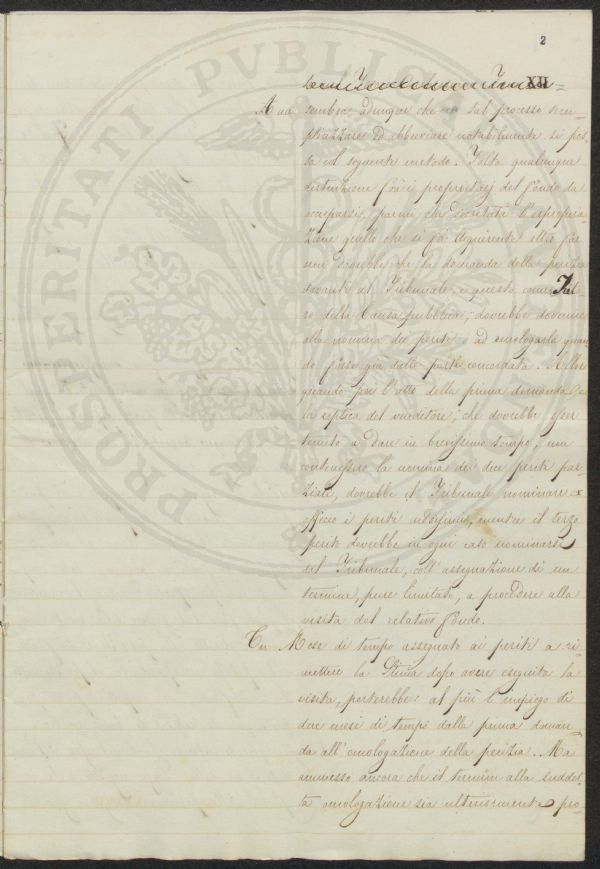 2
XII
A me sembra adunque che un tal processo sem-
plizzare ed abbreviare notabilmente si pos-
sa col seguente metodo. Tolta qualunque
distinzione frà i proprietarj del fondo da
occuparsi, parmi che decretata l'espropria-
zione quello che si fà acquirente altro far
non dovrebbe che la domanda della perizia
davanti al Tribunale, e questo
della Causa pubblica, dovrebbe devenire
alla nomina dei periti o ad omologarla quan-
do fosse già dalle parti concordata. Allor
quando poi l'atto della prima domanda e
la replica del venditore, che dovrebbe esser
tenuto a dare in brevissimo tempo, non
contenessero la nomina dei due periti par-
ziali, dovrebbe il Tribunale nominare ex
officio i periti medesimi, mentre il terzo
perito dovrebbe in ogni caso nominarsi
dal Tribunale, coll'assegnazione di un
termine, pure limitato, a procedere alla
visita del relativo fondo.
Un Mese di tempo assegnato ai periti a ri-
mettere la Stima dopo avere eseguita la
visita, porterebbe al più l'impiego di
due mesi di tempo dalla prima doman-
da all'omologazione della perizia. Ma
ammesso ancora che il termine alla suddet-
ta omologazione sia ulteriormente pro-
PROSPERITATI PUBLICAE